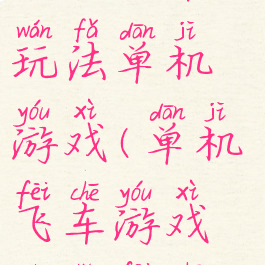 wán fǎ dān jī
玩法单机
yóu xì dān jī
游戏(单机
fēi chē yóu xì
飞车游戏